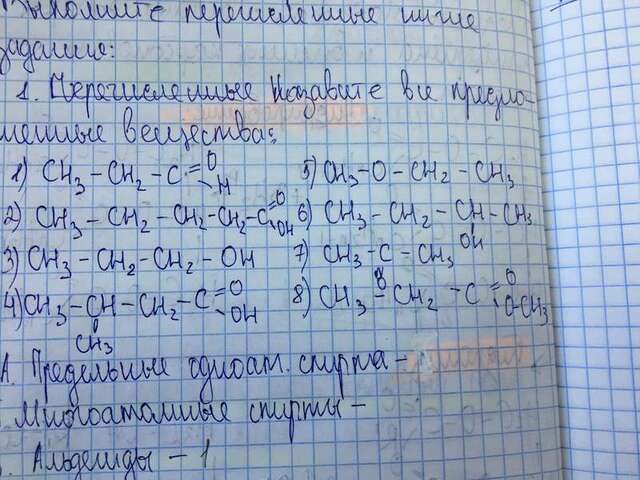 Выполните перечисленные ниже
задание:
1. Перечисленные Назовите все предло-
женные вещества:
1) CH₃ – CH₂ – C =O –H
5) CH₃–O–CH₂–CH₃
2) CH₃ – CH₂ – CH₂ – CH₂ – C =O OH
6) CH₃ – CH₂ – CH – CH₃
OH
3) CH₃ – CH₂ – CH₂ – OH
7) CH₃ – C – CH₃
O
4) CH₃ – CH – CH₂ – C =O OH
CH₃
8) CH₃ – CH₂ – C =O O–CH₃
А. Предельные одноат. спирта –
Многоатомные спирты –
Альдегиды – 1